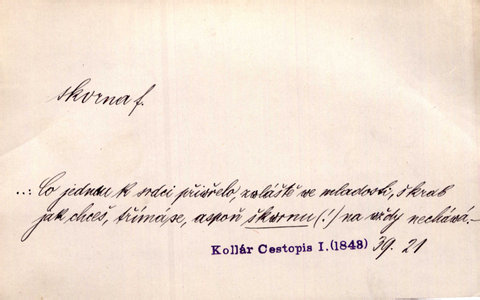 skvrna f.
..: Co jednou k srdci přiwřelo, zwláště we mladosti, škrab
jak chceš, třímá se, aspoň škwrnu (!) na wždy nechává.—
Kollár Cestopis I. (1843) 39. 21